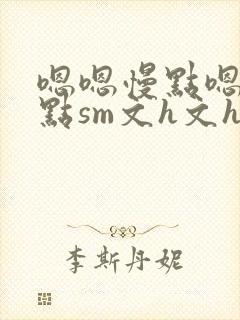 嗯嗯慢點嗯
點sm文h文h
李斯丹妮